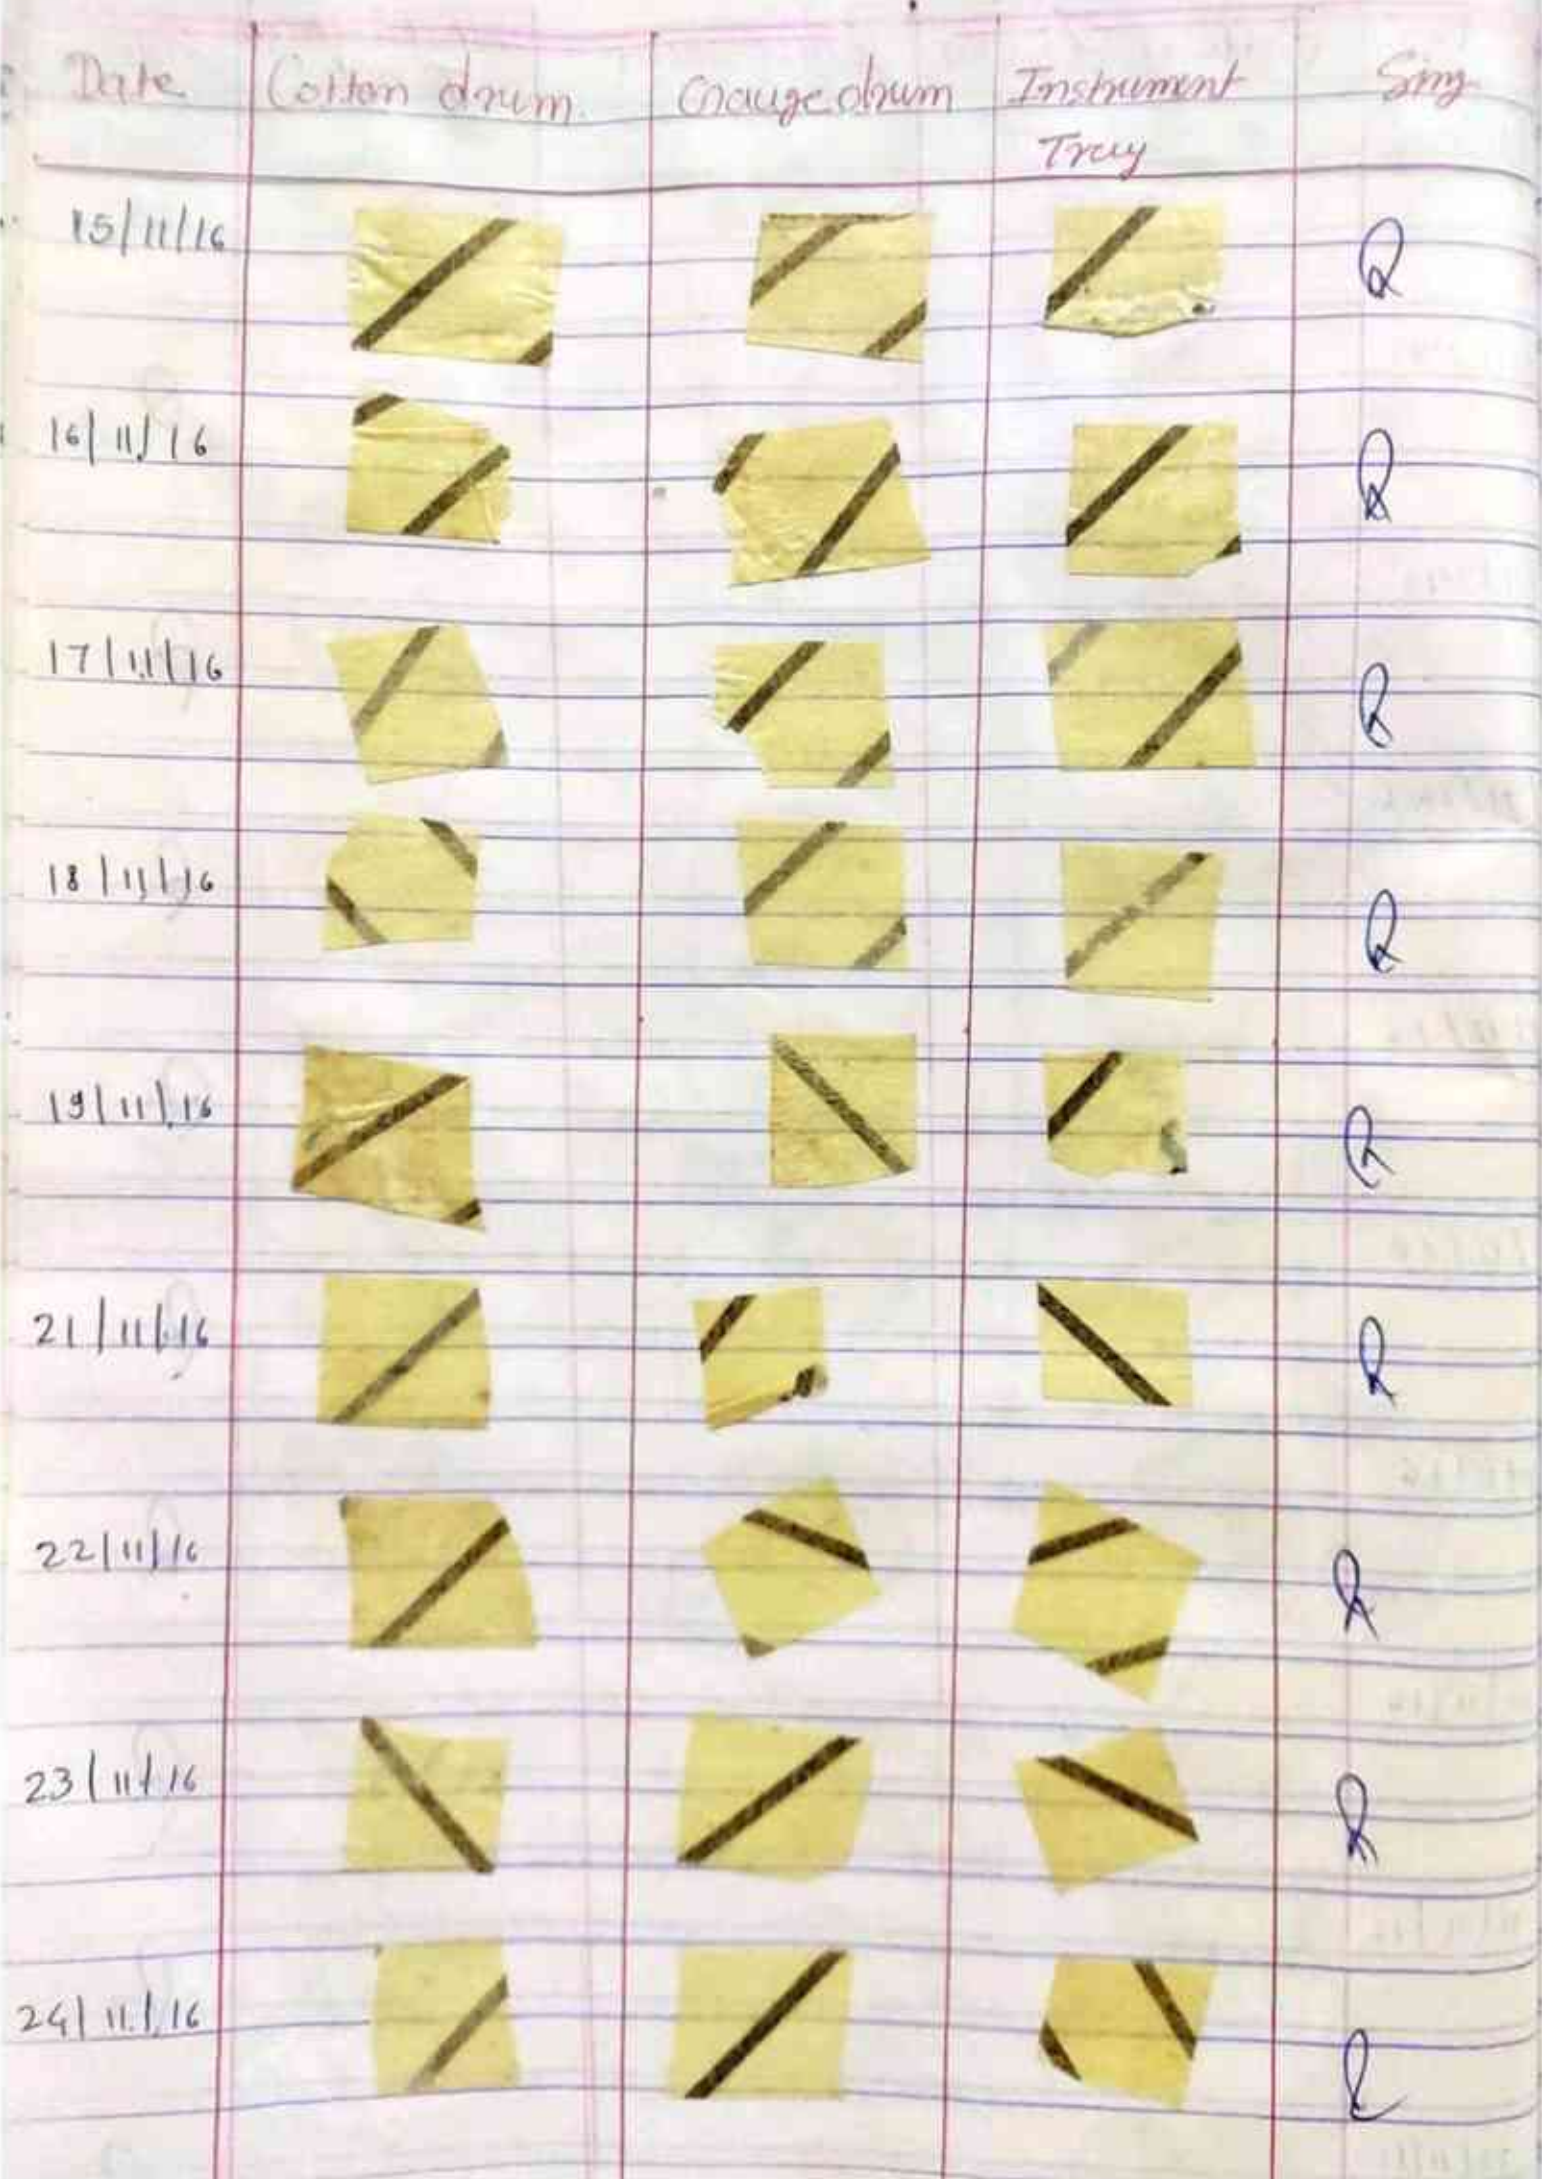 Date Cotton drum Gauge drum Instrument Sing
Tray
15/11/16
16/11/16
17/11/16
18/11/16
19/11/16
21/11/16
22/11/16
23/11/16
24/11/16